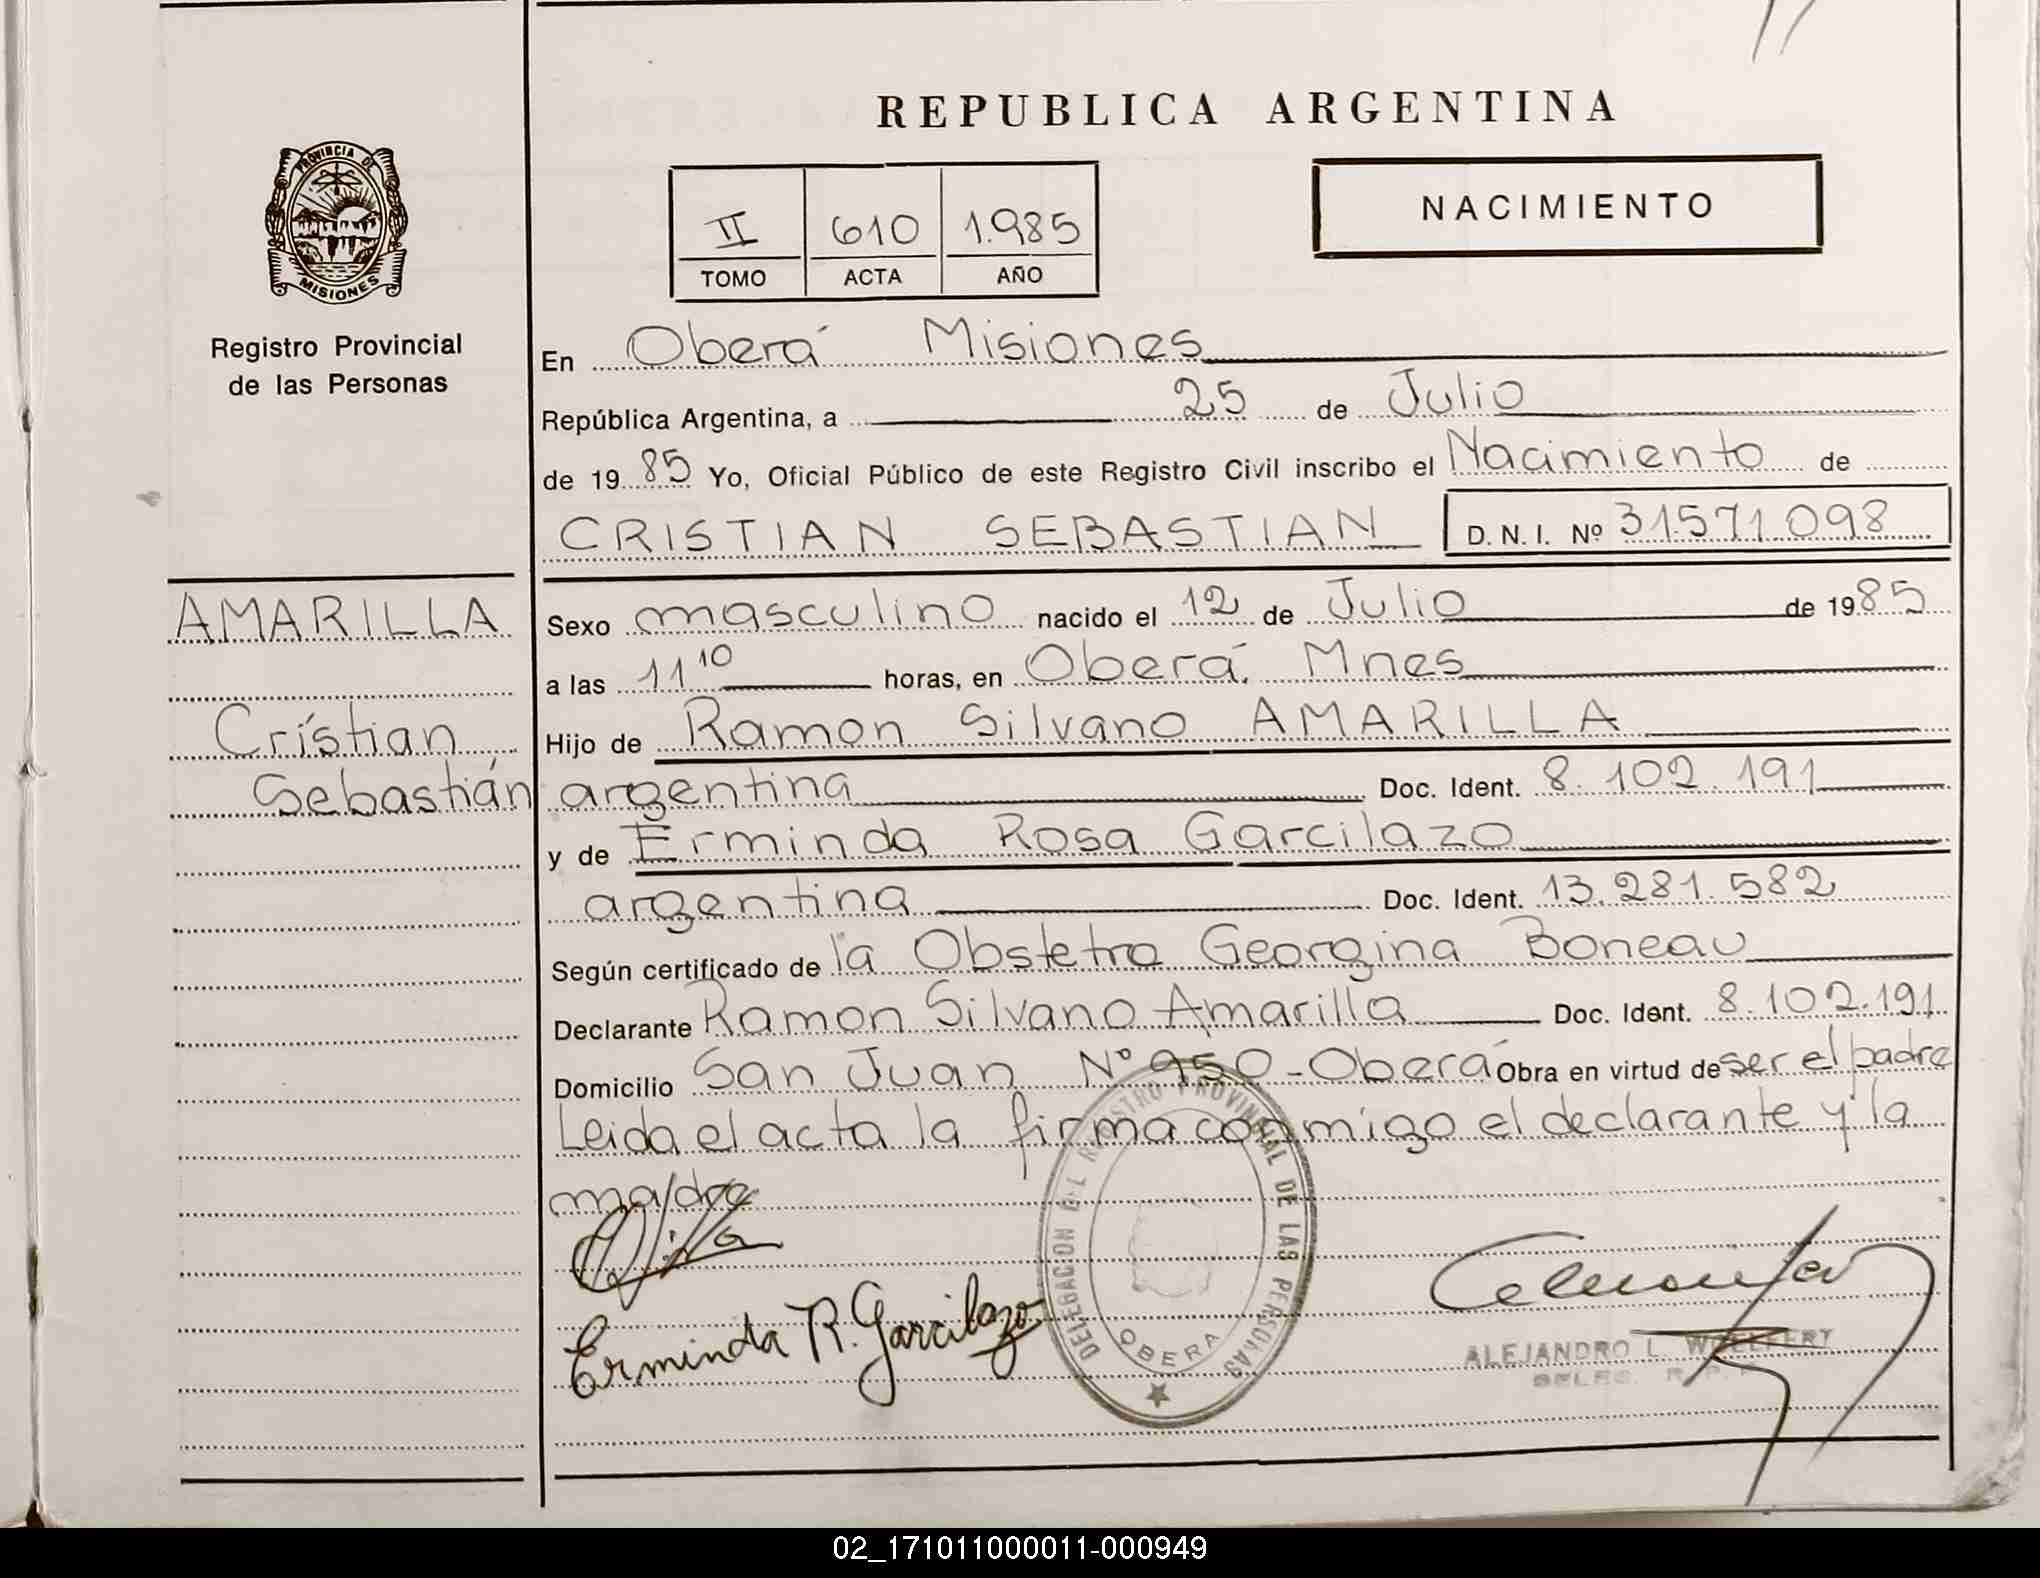 REPUBLICA ARGENTINA
PROVINCIA DE
MISIONES
Registro Provincial
de las Personas
II 610 1.985
TOMO ACTA AÑO
NACIMIENTO
En Oberá Misiones
República Argentina, a 25 de Julio
de 1985 Yo, Oficial Público de este Registro Civil inscribo el Nacimiento de
CRISTIAN SEBASTIAN D. N. I. Nº 31571.098
AMARILLA
Cristian
Sebastián
Sexo masculino nacido el 12 de Julio de 1985
a las 11 10 horas, en Oberá. Mnes
Hijo de Ramon Silvano AMARILLA
argentina Doc. Ident. 8.102.191
y de Erminda Rosa Garcilazo
argentina Doc. Ident. 13.281.582
Según certificado de la Obstetra Georgina Boneau
Declarante Ramon Silvano Amarilla Doc. Ident. 8.102.191
Domicilio San Juan Nº 950 - Oberá Obra en virtud de ser el padre
Leida el acta la firma conmigo el declarante y la
madre
Erminda R. Garcilazo
DELEGACION DEL REGISTRO PROVINCIAL DE LAS PERSONAS
OBERA
ALEJANDRO L.
02_171011000011-000949